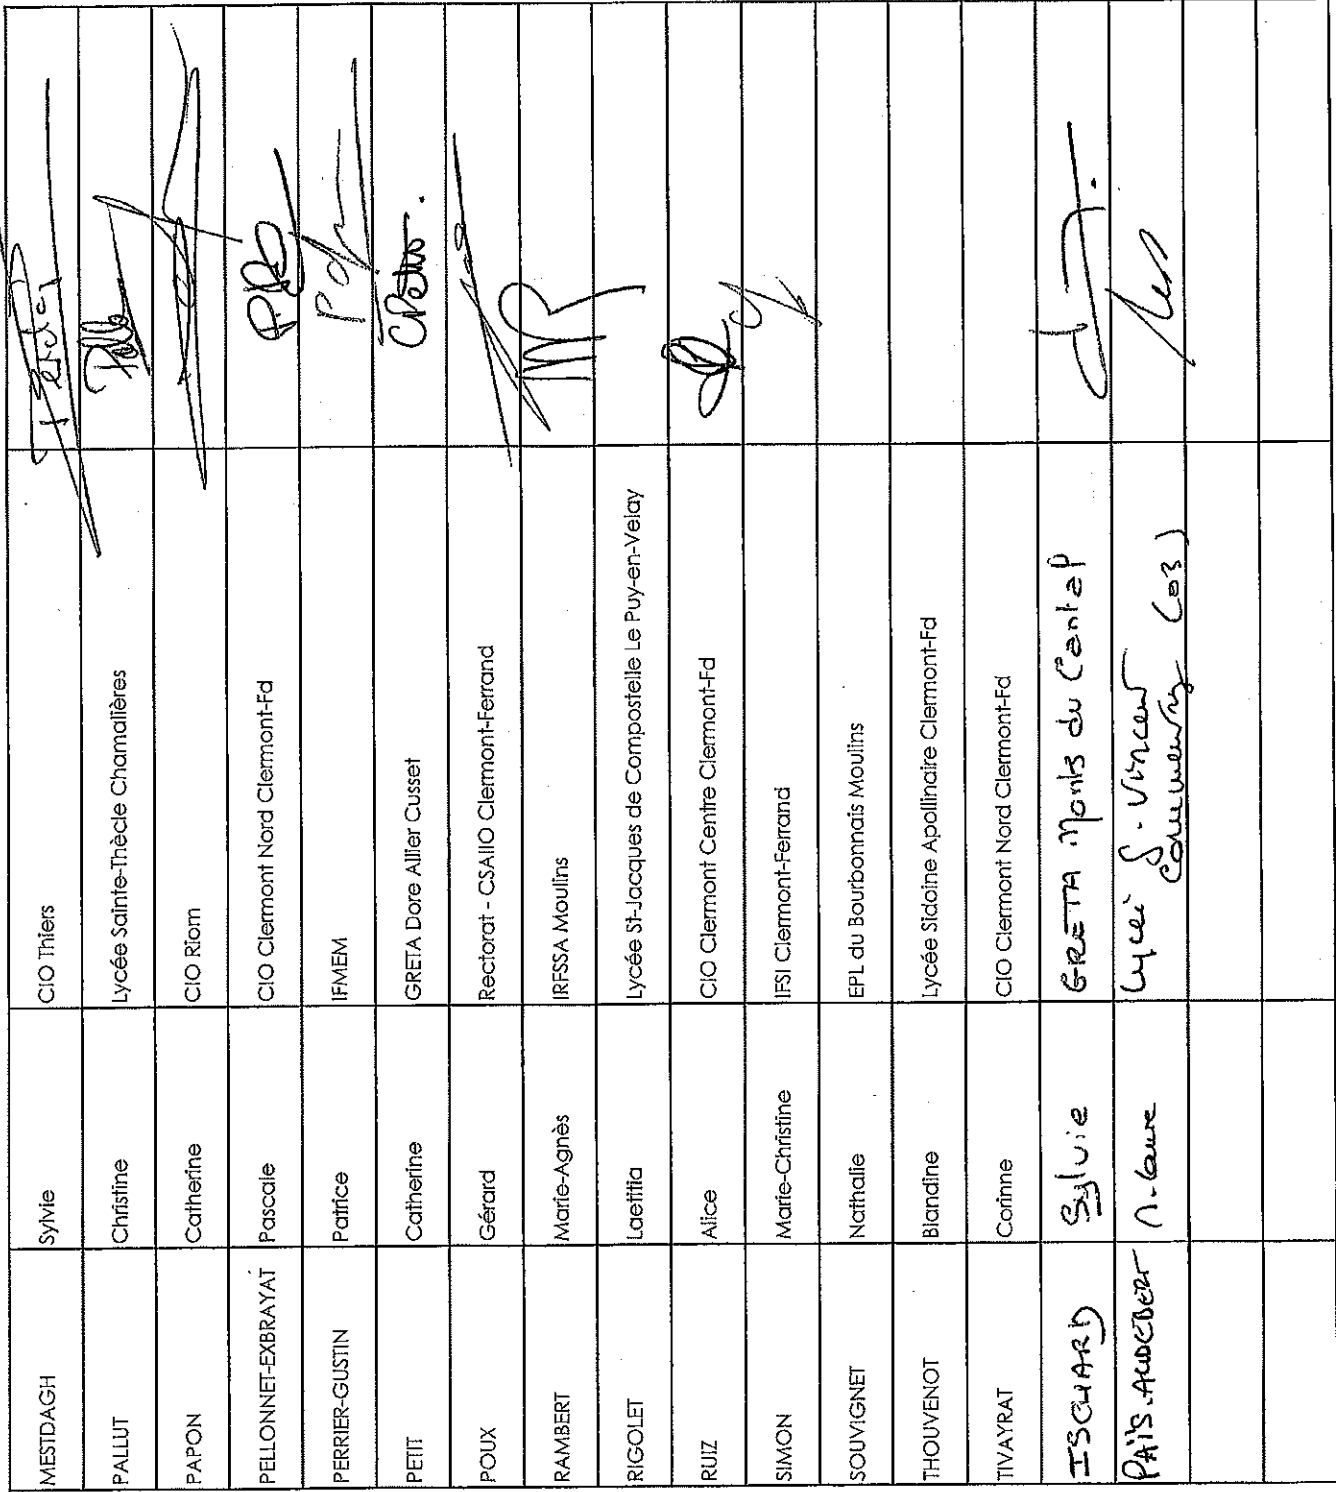 MESTDAGH Sylvie CIO Thiers
PALLUT Christine Lycée Sainte-Thècle Chamalières
PAPON Catherine CIO Riom
PELLONNET-EXBRAYAT Pascale CIO Clermont Nord Clermont-Fd
PERRIER-GUSTIN Patrice IFMEM
PETIT Catherine GRETA Dore Allier Cusset
POUX Gérard Rectorat - CSAIIO Clermont-Ferrand
RAMBERT Marie-Agnès IRFSSA Moulins
RIGOLET Laetitia Lycée St-Jacques de Compostelle Le Puy-en-Velay
RUIZ Alice CIO Clermont Centre Clermont-Fd
SIMON Marie-Christine IFSI Clermont-Ferrand
SOUVIGNET Nathalie EPL du Bourbonnais Moulins
THOUVENOT Blandine Lycée Sidoine Apollinaire Clermont-Fd
TIVAYRAT Corinne CIO Clermont Nord Clermont-Fd
ISCHARD Sylvie GRETA Monts du Cantal
PAÏS-AUDEBERT M. Laure Lycée S. Vincent
Commentry (03)